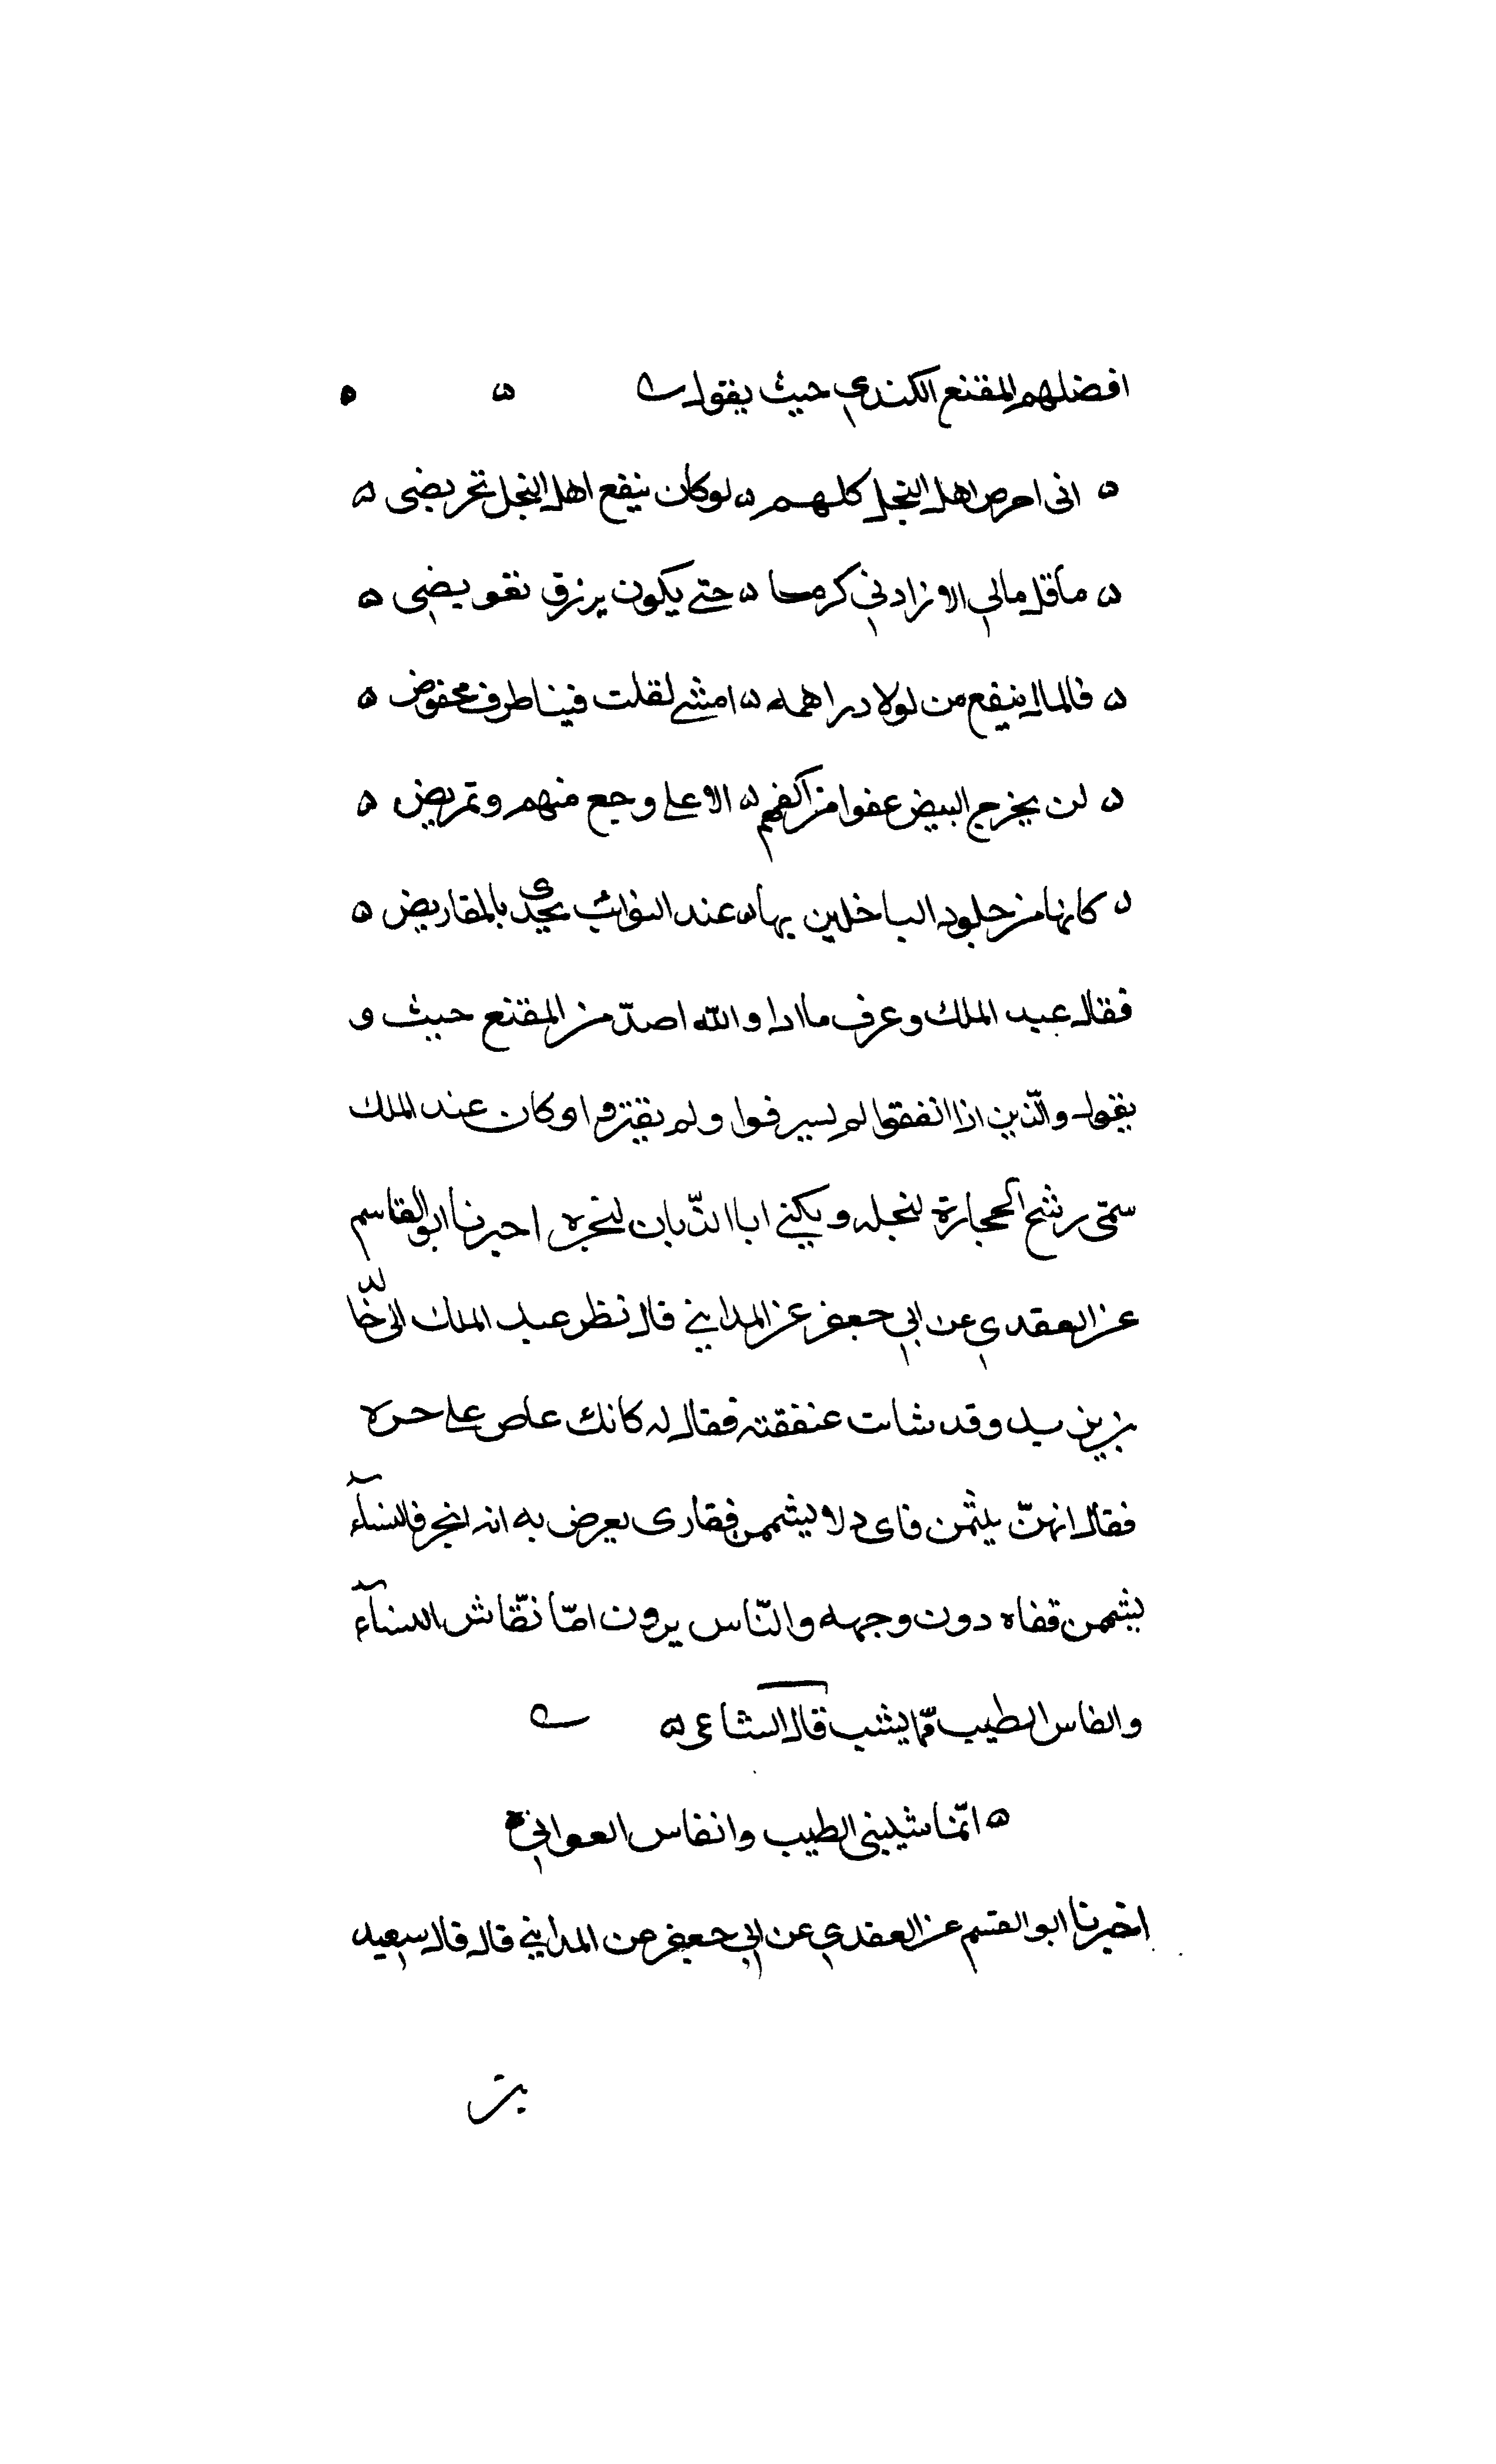 افضلهم المقنع الكندي حيث يقول
انى احرص اهل البخل كلهم ه لو كان ينفع اهل البخل تحريضى ه
ه ماقل مالي الا زادني كرما ه حتى يكون برزق تعويضى ه
ه فالمال ينفع من لولا دراهمه ه امسى لقلت فينا طرف مخفوض ه
ه لن يخرج البيض عفوا من اكفهم ه الا على وجع منهم وتمريض ه
ه كانها من جلود الباخلين بها ه عند النوائب تحدى بالمقاريض ه
فقال عبد الملك وعرف ما اراد والله اصدق من المقنع حيث و
يقول والّذين اذا انفقوا لم يسرفوا ولم يقتروا وكان عبد الملك
سمّى رشح الحجارة لبخله ويكنى ابا الذّبان لبخره اخبرنا ابو القاسم
عن العقدي عن ابي جعفر عن المدايني قال نظر عبد الملك الى خالد
بن يزيد وقد شابت عنفقته فقال له كانك عاض على
فقال انهنّ يلثمن فاى ولا يشممن فقاى يعرض به انه ابخر فالنسآء
يشممن قفاه دون وجهه والنّاس يرون انّ النسآء
وانفاس الطيب ممّا يشيب قال الشاعر ه
ه انّما شيبنى الطيب وانفاس الغواني
اخبرنا ابو القسم عن العقدي عن ابي جعفر عن المدايني قال قال سعيد
بن